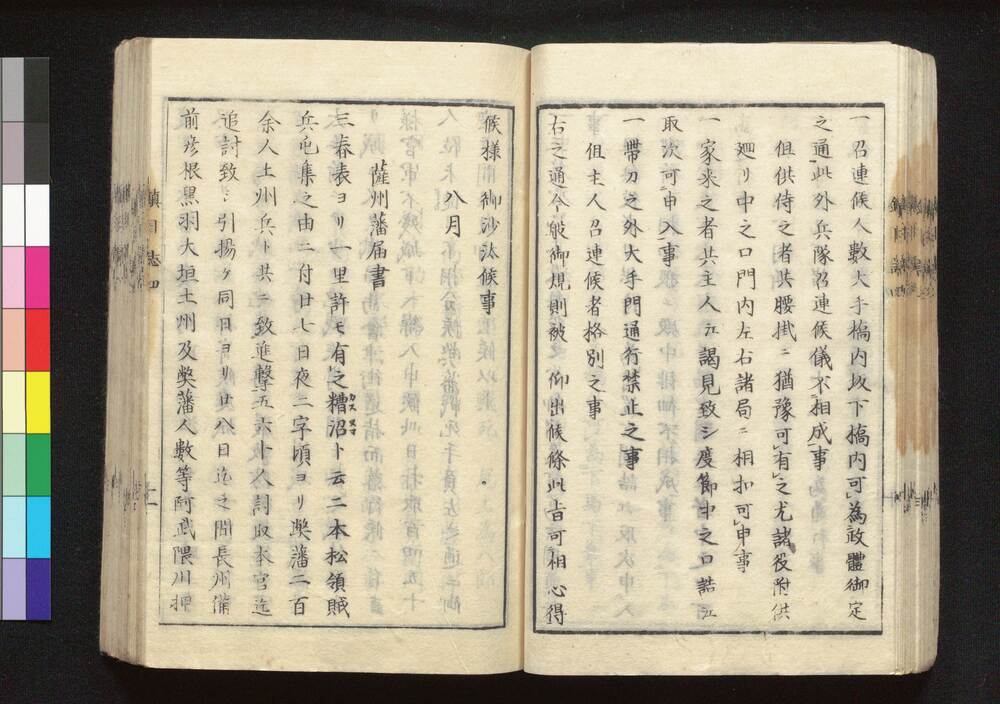 一召連候人數大手橋内坂下橋内可為改體御定
之通此外兵隊召連候儀不相成事
但供侍之者共腰掛ニ猶豫可有之尤諸役附供
廻リ中之口門内左右諸局ニ相扣可申事
一家来之者共主人江謁見致シ度節中之口詰江
取次可申入事
一帯刀之外大手門通行禁止之事
但主人召連候者格別之事
右之通今般御規則被仰出候條此旨可相心得
候様御沙汰候事
八月
薩州藩届書
三春表ヨリ一里許モ有之糟沼ト云二本松領賊
カスヌマ
兵屯集之由ニ付廿七日夜二字頃ヨリ弊藩二百
余人土州兵ト共ニ致進撃五六十人討取本宮迄
追討致シ引揚ケ同日ヨリ廿八日迄之間長州備
前彦根黒羽大垣土州及弊藩人數等阿武隈川押
鎮日誌四